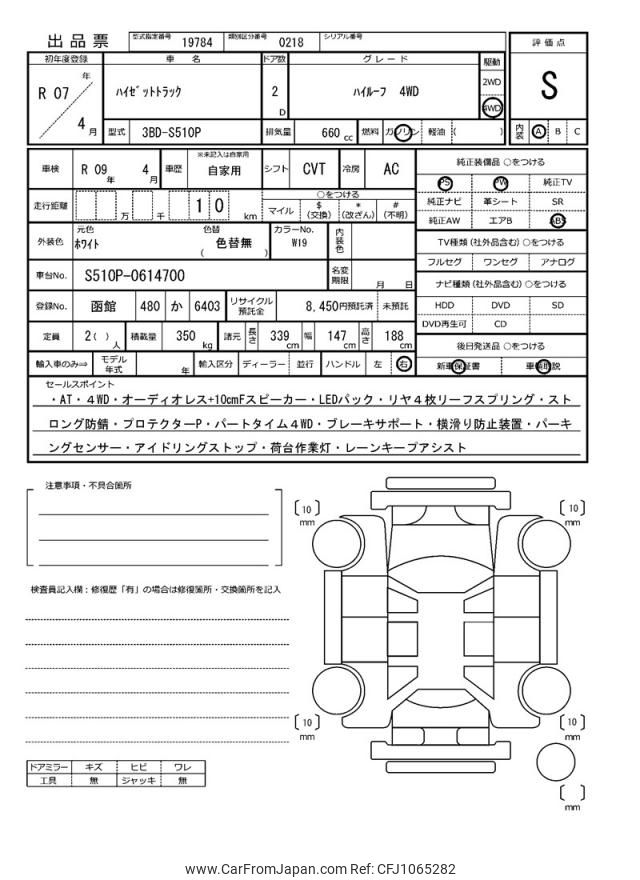 出品票 型式指定番号 19784 類別区分番号 0218 シリアル番号
評価点
S
内装 A B C
初年度登録 車名 ドア数 グレード 駆動
R 07 年 4 月
ﾊｲｾﾞｯﾄﾄﾗｯｸ 2 D ﾊｲﾙｰﾌ 4WD 2WD
4WD
型式 3BD-S510P 排気量 660 cc 燃料 ガソリン 軽油 ( )
車検 R 09 年 4 月 車歴 ※未記入は自家用 自家用 シフト CVT 冷房 AC
走行距離 万 千 1 0 km ○をつける
マイル $(交換) *(改ざん) #(不明)
外装色 元色 ﾎﾜｲﾄ 色替 色替無 ( ) カラーNo. W19 内装色
車台No. S510P-0614700 名変期限 月 日
登録No. 函館 480 か 6403 リサイクル預託金 8,450円預託済 未預託
定員 2( ) 人 積載量 350 kg 諸元 長さ 339 cm 幅 147 cm 高さ 188 cm
輸入車のみ⇒ モデル年式 年 輸入区分 ディーラー 並行 ハンドル 左 右
純正装備品 ○をつける
PS PW 純正TV
純正ナビ 革シート SR
純正AW エアB ABS
TV種類 (社外品含む) ○をつける
フルセグ ワンセグ アナログ
ナビ種類 (社外品含む) ○をつける
HDD DVD SD
DVD再生可 CD
後日発送品 ○をつける
新車保証書 車輌取説
セールスポイント
・AT・4WD・オーディオレス+10cmFスピーカー・LEDパック・リヤ4枚リーフスプリング・スト
ロング防錆・プロテクターP・パートタイム4WD・ブレーキサポート・横滑り防止装置・パーキ
ングセンサー・アイドリングストップ・荷台作業灯・レーンキープアシスト
注意事項・不具合箇所
検査員記入欄：修復歴「有」の場合は修復箇所・交換箇所を記入
[10] mm
[10] mm
[10] mm
[10] mm
[ ] mm
ドアミラー キズ ヒビ ワレ
工具 無 ジャッキ 無
www.CarFromJapan.com Ref: CFJ1065282